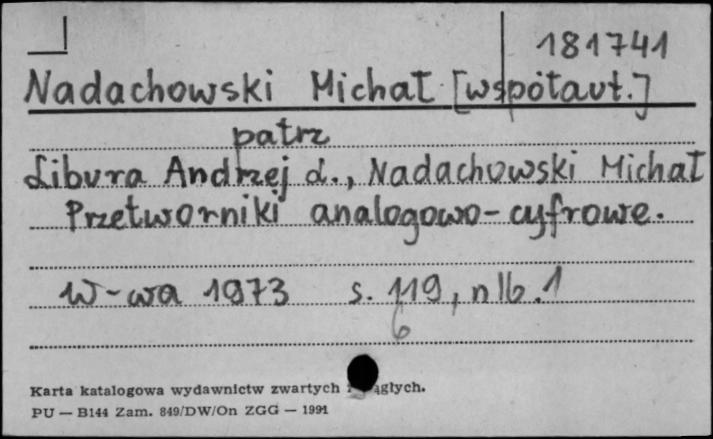 181741
Nadachowski Michał [współaut.]
patrz
Libura Andrzej L., Nadachowski Michał
Przetworniki analogowo-cyfrowe.
W-wa 1973 s. 119, nlb. 1
6
Karta katalogowa wydawnictw zwartych i ciągłych.
PU — B144 Zam. 849/DW/On ZGG — 1991